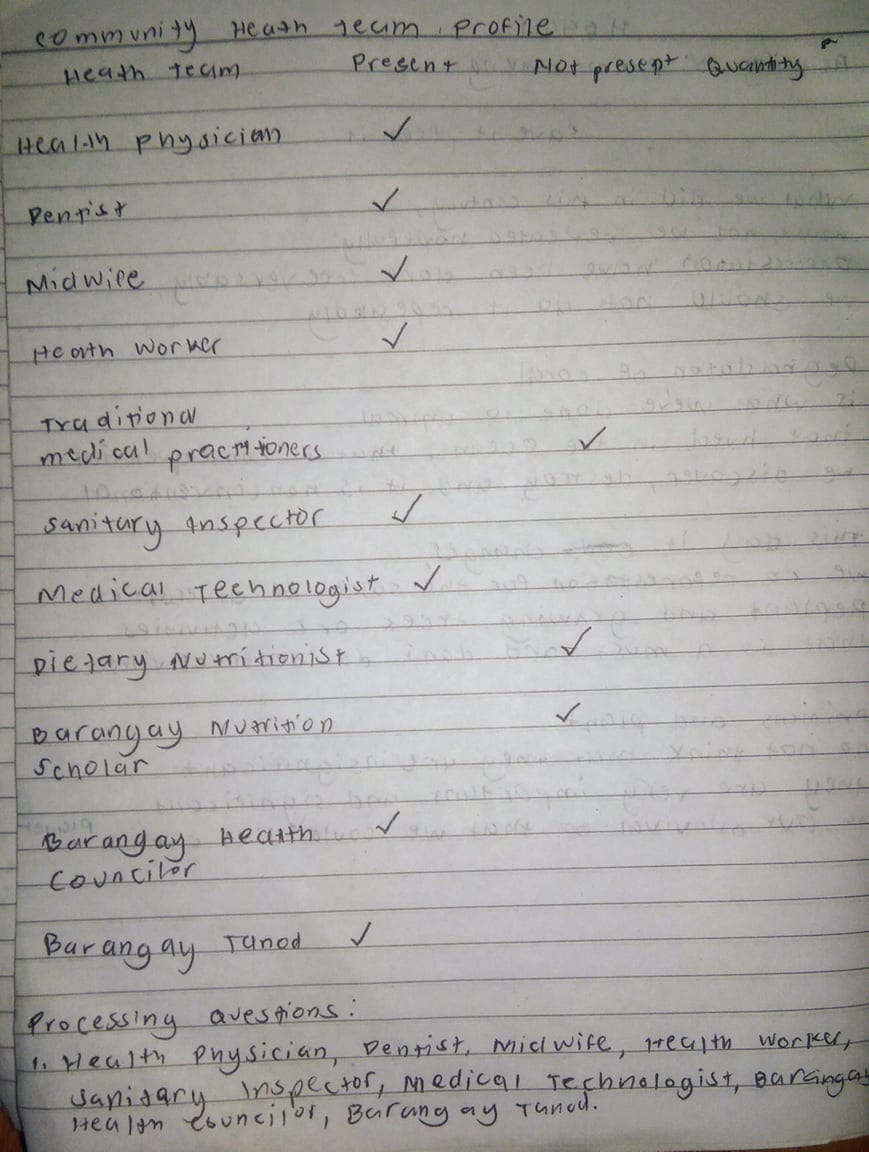 Community Heath Team Profile
Heath Team Present Not present Quantity
Health physician ✓
Dentist ✓
Midwife ✓
Heath Worker ✓
Traditional
medical practitioners ✓
Sanitary Inspector ✓
Medical Technologist ✓
Dietary Nutritionist ✓
Barangay Nutrition ✓
Scholar
Barangay Health ✓
Councilor
Barangay Tanod ✓
Processing Questions:
1. Health Physician, Dentist, Midwife, Health Worker,
Sanitary Inspector, Medical Technologist, Barangay
Health Councilor, Barangay Tanod.